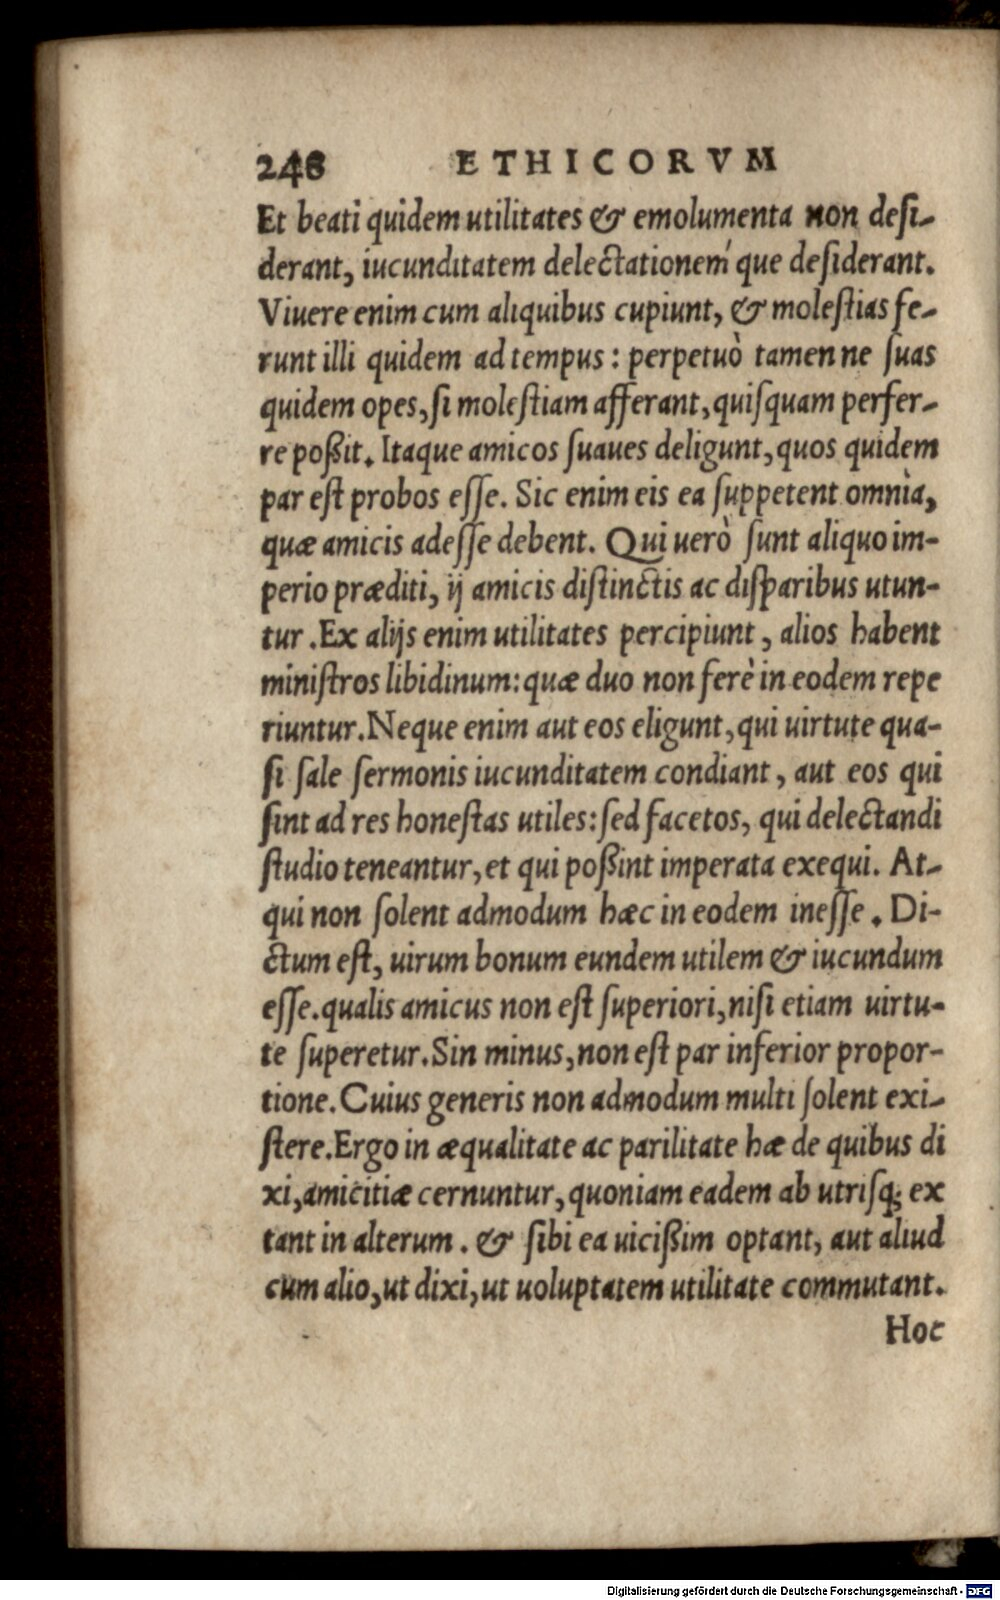 248 ETHICORVM
Et beati quidem utilitates & emolumenta non desi-
derant, iucunditatem delectationeḿ que desiderant.
Viuere enim cum aliquibus cupiunt, & molestias fe-
runt illi quidem ad tempus: perpetuò tamen ne suas
quidem opes, si molestiam afferant, quisquam perfer-
re poßit. Itaque amicos suaues deligunt, quos quidem
par est probos esse. Sic enim eis ea suppetent omnìa,
quæ amicis adesse debent. Qui uerò sunt aliquo im-
perio præditi, ij amicis distinctis ac disparibus utun-
tur. Ex alijs enim utilitates percipiunt, alios habent
ministros libidinum: quæ duo non ferè in eodem repe
riuntur. Neque enim aut eos eligunt, qui uirtute qua-
si sale sermonis iucunditatem condiant, aut eos qui
sint ad res honestas utiles: sed facetos, qui delectandi
studio teneantur, et qui poßint imperata exequi. At-
qui non solent admodum hæc in eodem inesse. Di-
ctum est, uirum bonum eundem utilem & iucundum
esse. qualis amicus non est superiori, nisi etiam uirtu-
te superetur. Sin minus, non est par inferior propor-
tione. Cuius generis non admodum multi solent exi-
stere. Ergo in æqualitate ac parilitate hæ de quibus di
xi, amicitiæ cernuntur, quoniam eadem ab utrisq; ex
tant in alterum. & sibi ea uicißim optant, aut aliud
cum alio, ut dixi, ut uoluptatem utilitate commutant.
Hoc
Digitalisierung gefördert durch die Deutsche Forschungsgemeinschaft - DFG